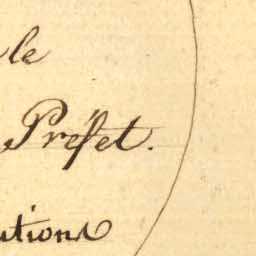 le
Préfet.
utions